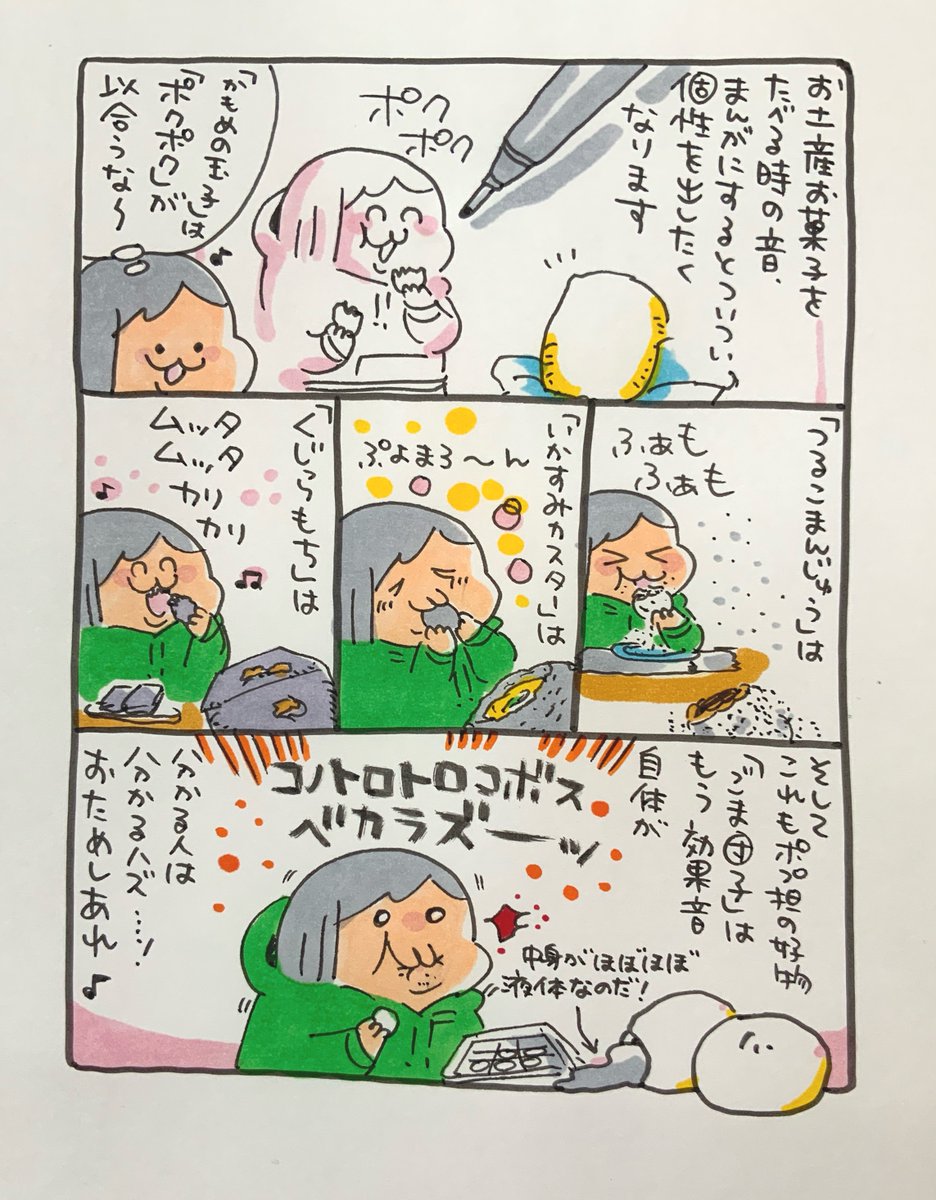 お土産お菓子を
たべる時の音、
まんがにするとついつい
個性を出したく
なります
ポク
ポク
「かもめの玉子」は
「ポクポク」が
似合うな〜
♪
「つるこまんじゅう」は
ふぁも
ふぁも
「いかすみカスター」は
ぷよまろ〜ん
「くじらもち」は
ムッタ
ムッタ
カリ
カリ
♪
♫
そして
これもポプ担の好物
「ごま団子」は
もう効果音
自体が
コノトロトロコボス
ベカラズーーッ
中身がほぼほぼ
液体なのだ!
分かる人は
分かるハズ…!
おためしあれ♪